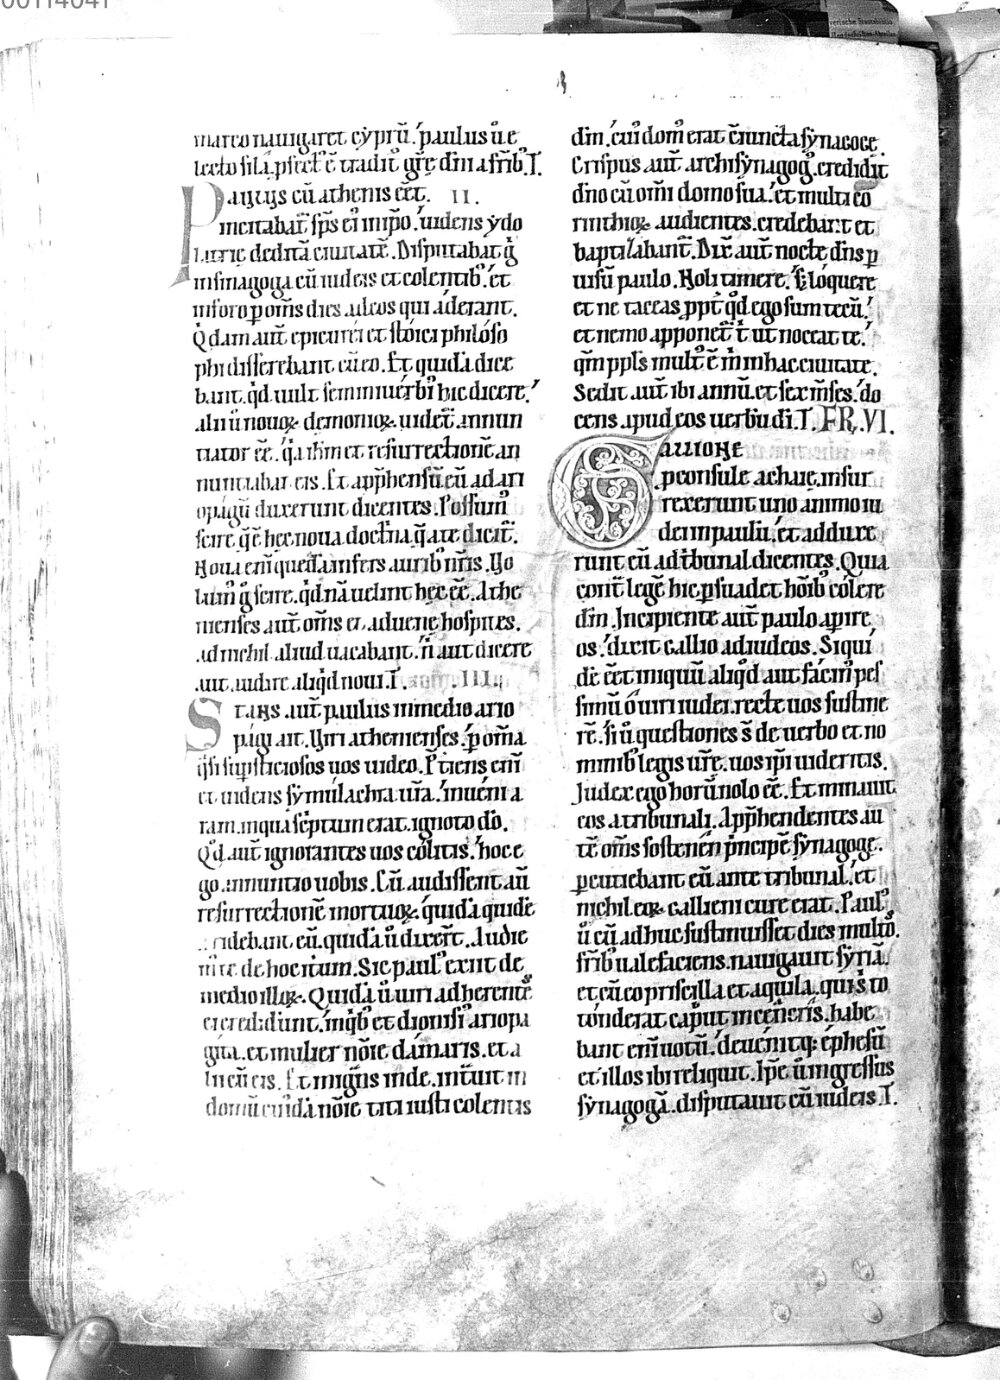 00114041
marco nauigaret cyprū. paulus ū e
lecto sila. pfect᷒ ē tradit᷒ gr̄e dn̄i a fr̄ib᷒. T.
Paulus cū athenis eēt. II.
incitabat᷑ sp̄s ei᷒ in ip̄o. uidens ydo
latrię deditā ciuitatē. Disputabat g̊
in sinagoga cū iudeis et colentib᷒. et
in foro p om̄s dies. ad eos qui aderant.
Qdam aut̄ epicurei et stoici philoso
phi disserebant cū eo. Et quidā dice
bant. qd̄ uult seminiuerbi᷒ hic dicere.
alii ū nouoꝝ demonioꝝ uidet᷑ annun
tiator eē. qa ihm̄ et resurrectionē an
nuntiabat eis. Et apphensū eū ad ari
opagū duxerunt dicentes. Possum᷒
scire. q̄ ē hec noua doctīna. q̄ a te dicit᷑.
Noua eni᷒ quedā infers aurib᷒ nr̄is. Uo
lum᷒ g̊ scire. qd̄ nā uelint hec eē. Athe
nienses aut̄ om̄s et aduenę hospites.
ad nichil aliud uacabant. n̄ aut dicere
aut audire aliqd noui. T. III.
Stans aut̄ paulus in medio ario
pagi ait. Uiri athenienses. p om̄a
q̄si supsticiosos uos uideo. Pt̄iens eni᷒
et uidens symulachra ur̄a. inueni a
ram. in qua scptum erat. ignoto do̅.
Qd̄ aut̄ ignorantes uos colitis. hoc e
go annuntio uobis. Cū audissent aū
resurrectionē mortuoꝝ. quidā quidē
irridebant eū. quidā ū dixert̄. Audie
m᷒ te de hoc itum̄. Sic paul᷒ exiit de
medio illoꝝ. Quidā ū uiri adherentes
ei crediderunt. in qb᷒ et dionisi᷒ ariopa
gita. et mulier noīe damaris. et a
lii cū eis. Et migns̄ inde. int᷑uit in
domū cuidā noīe titi iusti colentis
dm̄. cui᷒ dom᷒ erat c̄iuncta synagoge.
Crispus aut̄ archisynagog᷒. credidit
dn̄o cū om̄i domo sua. et multi co
rinthioꝝ audientes. credebant et
baptizabant᷑. Dix̄ aut̄ nocte dn̄s p
uisū paulo. Noli timere. s; loquere
et ne taceas. ppt̄ qd̄ ego sum tecū.
et nemo apponet᷑ t̄ ut noceat te.
qm̄ ppl̄s mult᷒ ē m̄ in hac ciuitate.
Sedit aut̄ ibi annū et sex m̄ses. do
cens apud eos uerbū di̅. T. FR. VI.
Gallione
pconsule achaię. insur
rexerunt uno animo iu
dei in paulū. et addure
runt eū ad tbunal dicentes. Quia
cont̄ legē hic psuadet hoīb᷒ colere
dm̄. Incipiente aut̄ paulo apire
os. dixit gallio ad iudeos. Si qui
dē eēt iniquū aliqd aut facin᷒ pes
simū o uiri iudei. recte uos sustine
rē. si ū questiones s̄ de uerbo et no
minib᷒ legis ur̄e. uos ip̄i uideritis.
Judex ego horū nolo eē. Et minauit
eos a tribunali. Appͥhendentes au
tē om̄s sostenēn pͥncipē synagogę.
pcutiebant eū ante tribunal. et
nichil eoꝝ gallieni cure erat. Paul᷒
ū cū adhuc sustinuisset dies multos.
fr̄ib᷒ uale faciens. nauigauit syriā.
et cū eo priscilla et aquila. qui s᷒ to
tonderat caput in cenc̄ris. habe
bant eni᷒ uotū. deuenitqꝫ ephesū
et illos ibi reliquit. Ip̄e ū ingressus
synagogā. disputauit cū iudeis. T.